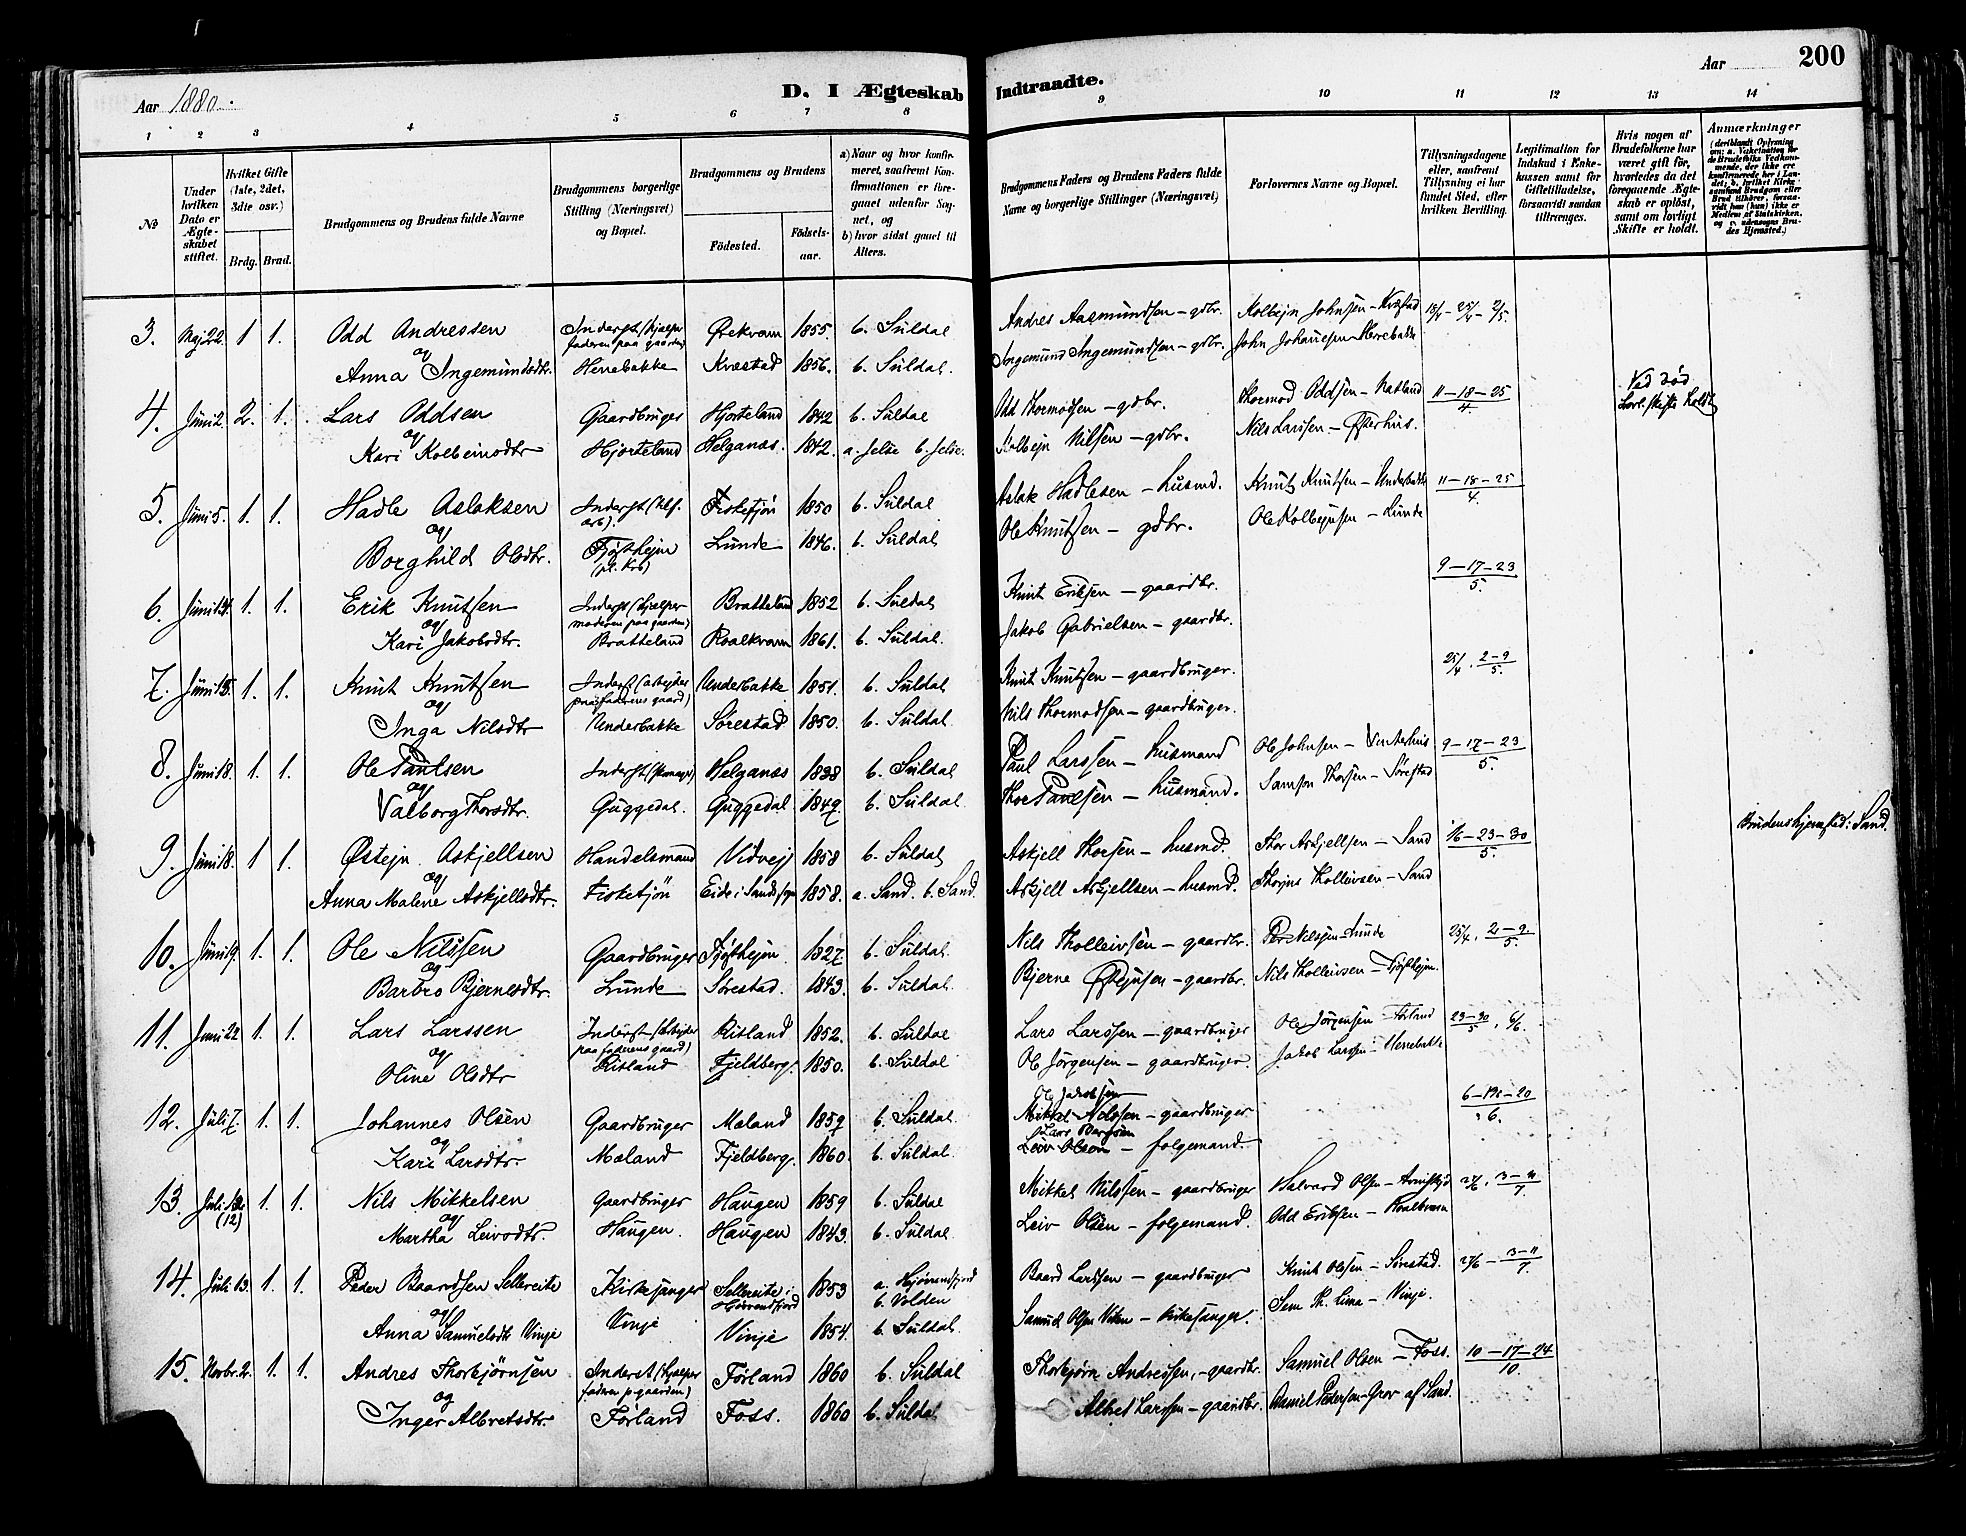 Aar 1880.
D. I Ægteskab Indtraadte.
Aar
200
1 2 3 4 5 6 7 8 9 10 11 12 13 14
№
Under hvilken Dato er Ægteskabet stiftet.
Hvilket Gifte (1ste, 2det, 3dte osv.)
Brdg. Brud.
Brudgommens og Brudens fulde Navne
Brudgommens borgerlige Stilling (Næringsvei) og Bopæl.
Brudgommens og Brudens
Födested.
Födselsaar.
a) Naar og hvor konfirmeret, saafremt Konfirmationen er foregaaet udenfor Sognet, og
b) hvor sidst gaaet til Alters.
Brudgommens Faders og Brudens Faders fulde Navne og borgerlige Stillinger (Næringsvei)
Forlovernes Navne og Bopæl.
Tillysningsdagene eller, saafremt Tillysning ei har fundet Sted, efter hvilken Bevilling.
Legitimation for Indskud i Enkekassen samt for Giftetilladelse, forsaavidt saadan tiltrænges.
Hvis nogen af Brudefolkene har været gift för, hvorledes da det foregaaende Ægteskab er oplöst, samt om lovligt Skifte er holdt.
Anmærkninger
3. Maj 22. 1 1. Odd Andressen Inderst (hjælper faderen paa gaarden) Qvekram 1855. b. Suldal Andres Aagmundsen - gdbr. Kolbejn Johnsen - Kvæstad 18/4 - 25/4 - 2/5.
og Anna Ingemundsdtr. Herrebakke Kvæstad 1856. b. Suldal. Ingemund Ingemundsen - gdbr. John Johannesen Herrebakke
4. Juni 2. 2. 1. Lars Oddsen Gaardbruger Hjorteland 1842 b. Suldal Odd Thormodsen - gdbr. Thormod Oddsen - Natland 11-18-25/4 Ved død Lovl. skifte holdt
og Kari Kolbeinsdtr Hjorteland Helganæs. 1842. a. Jelse b. Jelse. Kolbejn Nilsen - gdbr. Nils Larssen - Østerhus.
5. Juni 5. 1. 1. Hadle Aslaksen Inderst Fisketjön 1850 b. Suldal Aslak Hadlesen - husmd. Knut Knutsen - Nederbakke 11-18-25/4.
og Borghild Olsdtr. Fjøsthejm Lunde 1846. b. Suldal Ole Knutsen - gdbr. Ole Kolbejnsen - Lunde
6. Juni 14. 1. 1. Erik Knutsen Inderst (hjælper moderen paa gaarden) Bratteland 1852 b. Suldal Knut Eriksen - gaardbr. 9-17-23/5.
og Kari Jakobsdtr. Bratteland Roalkvam 1861. b. Suldal. Jakob Gabrielsen - gaardbr.
7. Juni 15. 1. 1. Knut Knutsen Inderst (arbejder paa faderens gaard) Nederbakke 1851. b. Suldal Knut Knutsen - gaardbruger. 25/4. 2-9/5.
og Inga Nilsdtr Nederbakke Sørestad 1850. b. Suldal. Nils Thormodsen - gaardbruger.
8. Juni 18. 1. 1. Ole Paulsen Inderst Helganæs 1838 b. Suldal Paul Larssen - husmand Ole Johnsen - Vinterhus 9-17-23/5.
og Valborg Thorsdtr. Guggedal. Guggedal 1849 b. Suldal. Thor Paulsen - husmand. Samson Thorsen - Sørestad
9. Juni 18. 1 1. Østejn Askjellsen Handelsmand Vidvej 1858 b. Suldal Askjell Thorsen - husmd. Thor Askjellsen - Sand 16-23-30/5. Brudens hjemsted: Sand.
og Anna Malene Askjellsdtr. Fisketjön Eide i Sands sogn 1858. a. Sand. b. Sand. Askjell Askjellsen - husmd. Thorjus Tholleivsen - Sand
10. Juni 19. 1. 1. Ole Nilssen Gaardbruger Fjøsthejm. 1827. b. Suldal. Nils Tholleivsen - gaardbr. Per Nilssen - Lunde 25/4. 2-9/5.
og Barbro Bjernesdtr. Lunde Sørestad. 1843. b. Suldal. Bjerne Østejnsen - gaardbr. Nils Tholleivsen - Fjøsthejm.
11. Juni 22 1. 1. Lars Larssen Inderst (arbejder paa faderens gaard) Ritland 1852. b. Suldal Lars Larssen - gaardbruger Ole Jørgensen - Førland 23-30/5. 6/6.
og Oline Olsdtr Ritland Fjeldberg. 1850. b. Suldal. Ole Jørgensen - gaardbruger. Jakob Larssen - Herrebakke
12. Juli 7. 1. 1. Johannes Olsen Gaardbruger Mæland 1859 b. Suldal. Ole Jakobsen Mikkel Nilssen - gaardbruger. 6-13-20/6.
og Kari Larsdtr. Mæland Fjeldberg. 1860. b. Suldal. Leiv Olsen - folgemand.
13. Juli (12) 1. 1. Nils Mikkelsen Gaardbruger Haugen 1859 b. Suldal Mikkel Nilssen - gaardbruger Halvard Olsen - 27/6. 3-11/7
og Martha Leivsdtr. Haugen. Haugen 1843. b. Suldal. Leiv Olsen - folgemand. Odd Eriksen - Roalkvam
14. Juli 13. 1. 1. Peder Baardsen Sellereite Kirkesanger Sellereite i Hjörrendfjord 1853 a. Hjörrendfjord b. Volden Baard Larssen - gaardbruger Knut Olesen - Sørestad. 27/6 - 3-11/7.
og Anna Samuelsdtr Vinje Vinje Vinje 1854. b. Suldal. Samuel Olsen Viken - kirkesanger. Sem Th. Lima - Vinje.
15. Novbr. 2. 1. 1. Andres Thorbjørnsen Inderst (hjælper faderen p. gaarden) Førland 1860 b. Suldal Thorbjørn Andresen, - gaardbr. Samuel Olsen - Foss. 10-17-24/10.
og Inger Albretsdtr. Førland Foss. 1860 b. Suldal Albret Larssen - gaardbr. Daniel Pedersen - Grov af Sand.